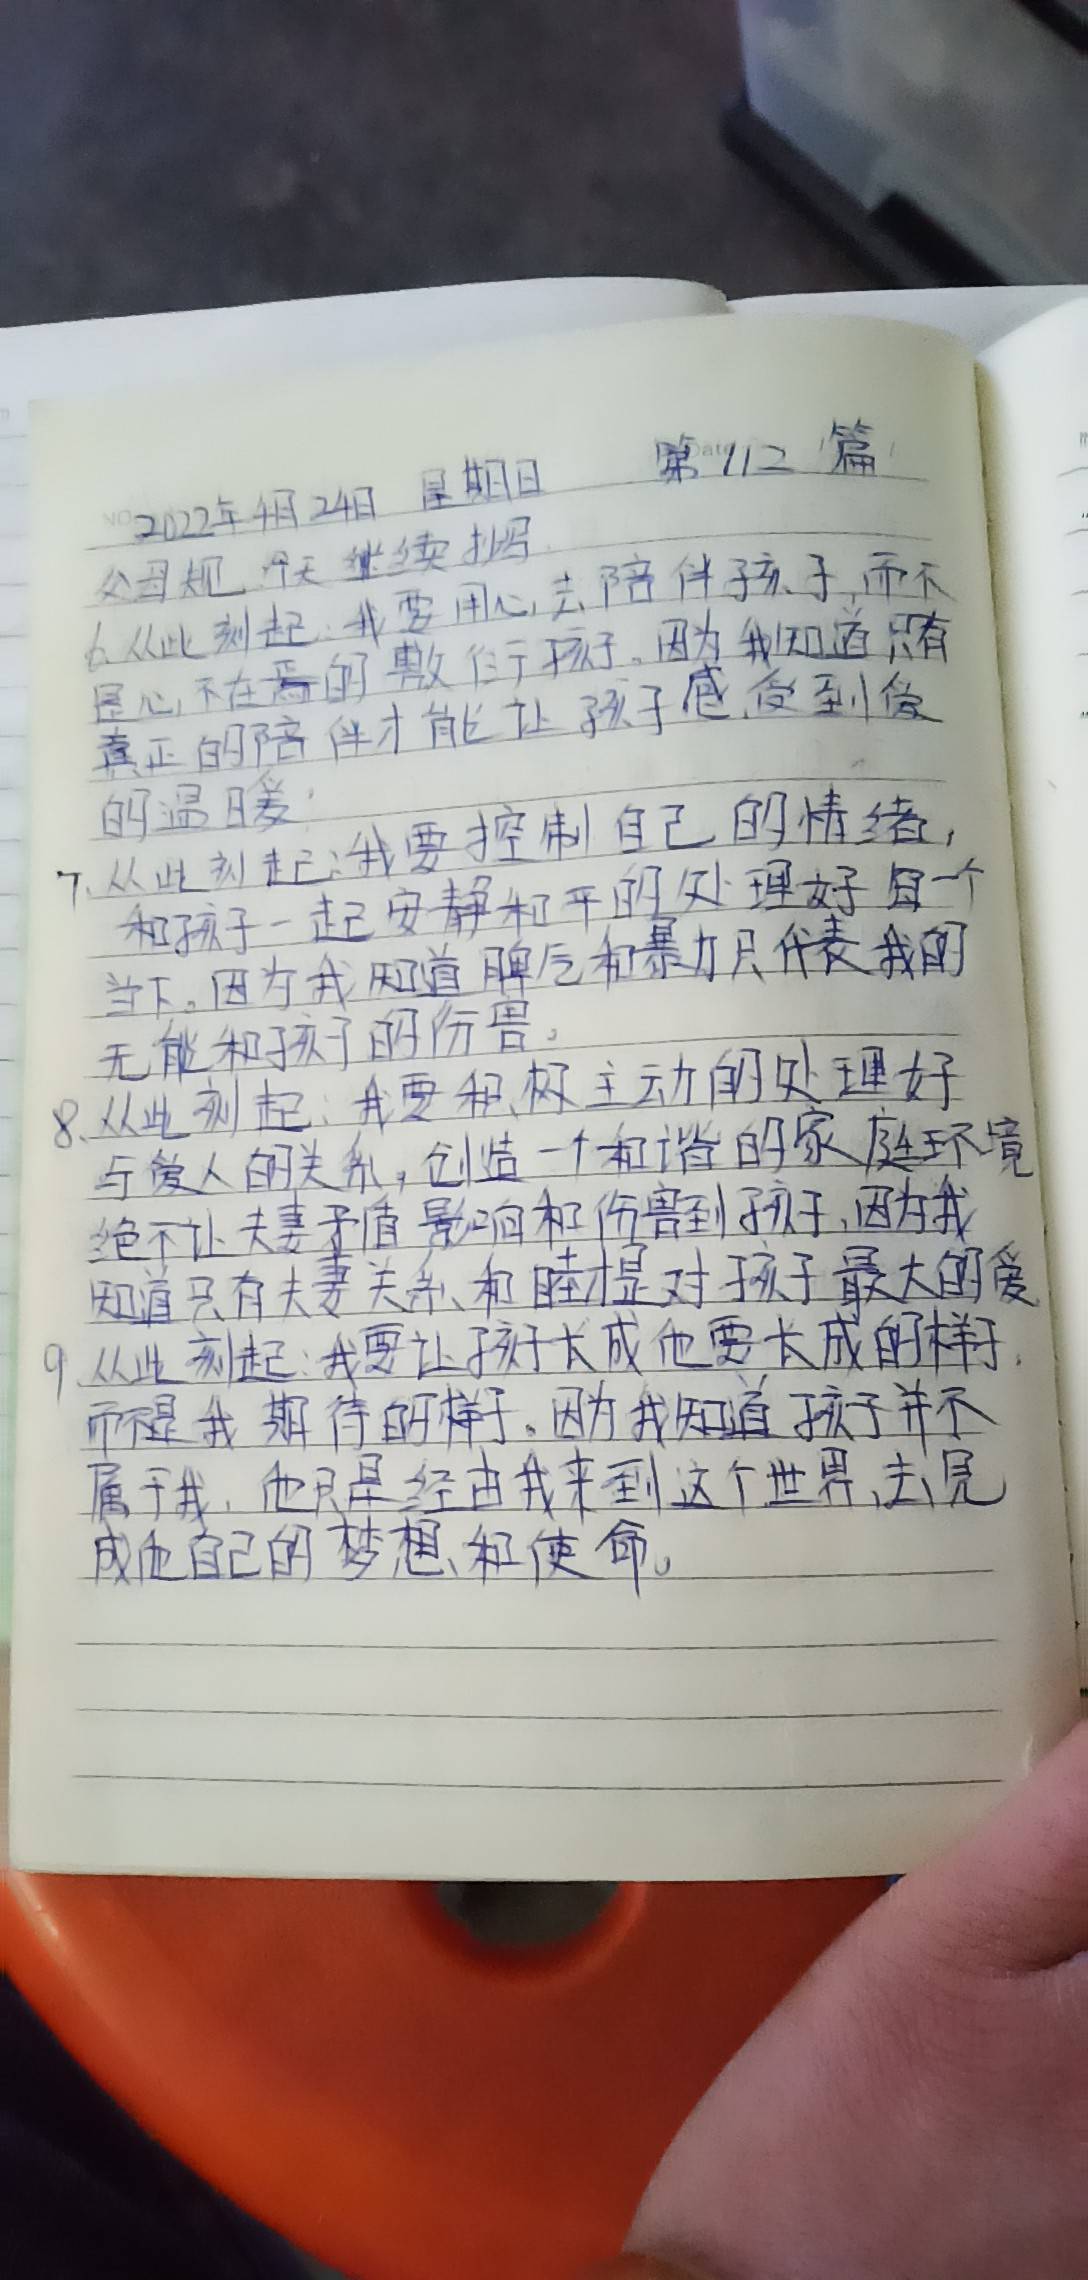 第112篇
2022年4月24日 星期日
父母规 今天继续抄写
6、从此刻起：我要用心去陪伴孩子，而不
是心不在焉的敷衍于孩子。因为我知道只有
真正的陪伴才能让孩子感受到爱
的温暖。
7、从此刻起：我要控制自己的情绪，
和孩子一起安静和平的处理好每一个
当下。因为我知道脾气和暴力只代表我的
无能和孩子的伤害。
8、从此刻起：我要积极主动的处理好
与爱人的关系，创造一个和谐的家庭环境
绝不让夫妻矛盾影响和伤害到孩子，因为我
知道只有夫妻关系和睦才是对孩子最大的爱
9、从此刻起：我要让孩子长成他要长成的样子，
而不是我期待的样子。因为我知道孩子并不
属于我，他只是经由我来到这个世界、去完
成他自己的梦想和使命。